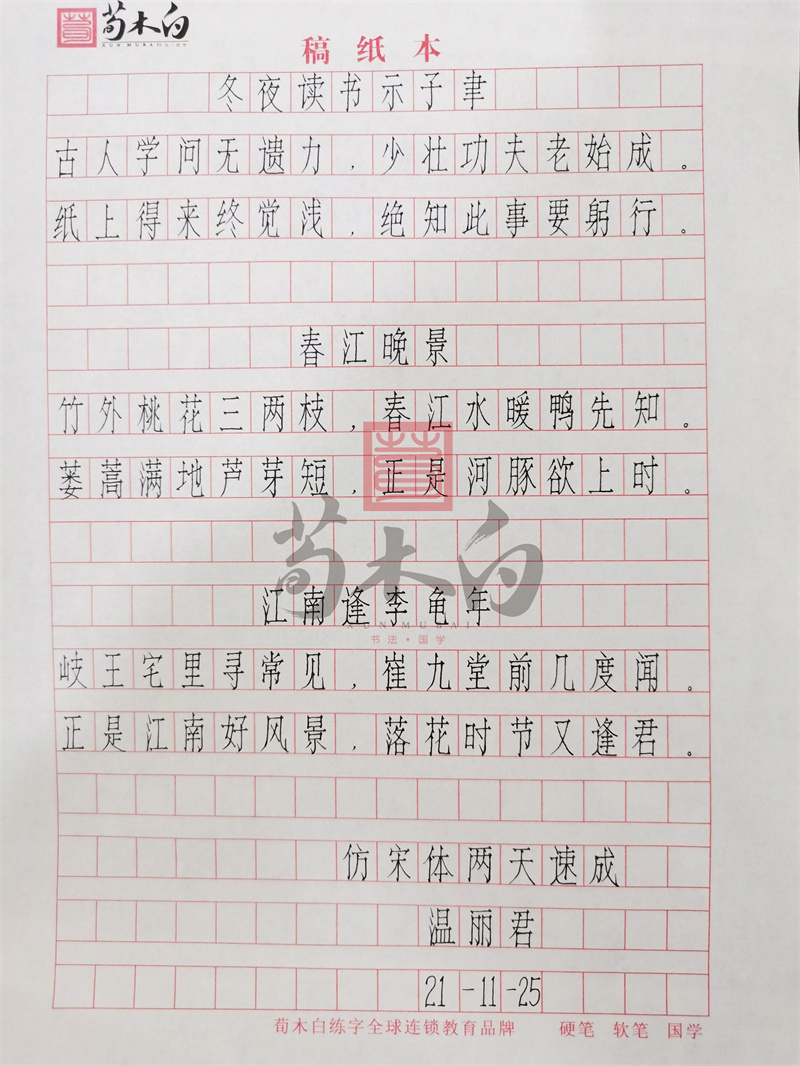 荀木白
XUN MU BAI
稿纸本
冬夜读书示子聿
古人学问无遗力，少壮功夫老始成。
纸上得来终觉浅，绝知此事要躬行。
春江晚景
竹外桃花三两枝，春江水暖鸭先知。
蒌蒿满地芦芽短，正是河豚欲上时。
荀木白
江南逢李龟年
XUN MU BAI
书法·国学
岐王宅里寻常见，崔九堂前几度闻。
正是江南好风景，落花时节又逢君。
仿宋体两天速成
温丽君
21-11-25
荀木白练字全球连锁教育品牌 硬笔 软笔 国学